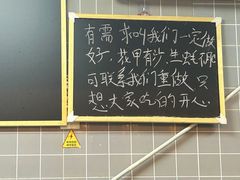 有需求叫我们一定做
好，花甲有沙，生蚝不肥
可联系我们重做 只
想大家吃的开心